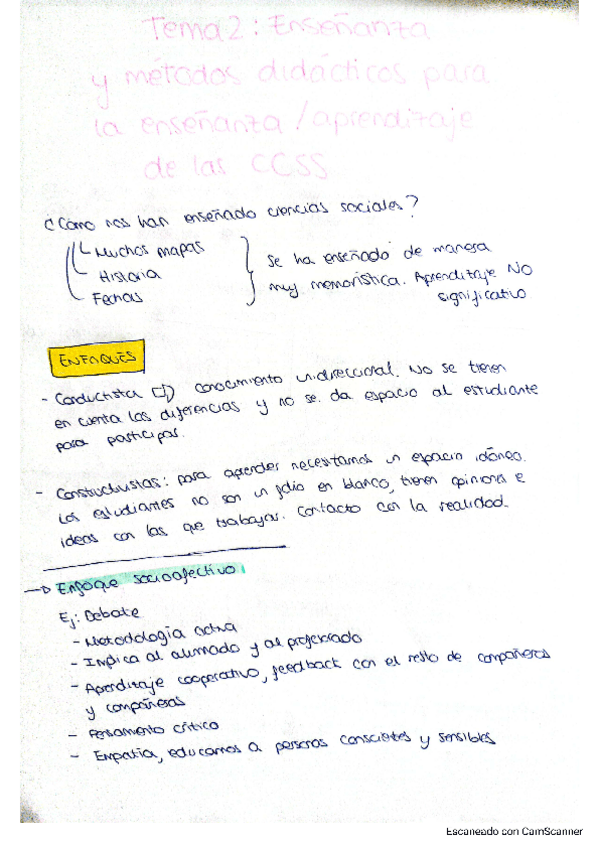 Tema 2: Enseñanza
y métodos didácticos para
la enseñanza / aprendizaje
de las CCSS
¿Cómo nos han enseñado ciencias sociales?
Muchos mapas
Historia
Fechas
Se ha enseñado de manera
muy memorística. Aprendizaje NO
significativo
ENFOQUES
- Conductista ⇨ conocimiento unidireccional. No se tienen
en cuenta las diferencias y no se da espacio al estudiante
para participar.
- Constructivistas: para aprender necesitamos un espacio idóneo.
Los estudiantes no son un folio en blanco, tienen opiniones e
ideas con las que trabajar. Contacto con la realidad.
→ Enfoque socioafectivo
Ej: Debate
- Metodología activa
- Implica al alumnado y al profesorado
- Aprendizaje cooperativo, feedback con el resto de compañeros
y compañeras
- Pensamiento crítico
- Empatía, educamos a personas conscientes y sensibles
Escaneado con CamScanner